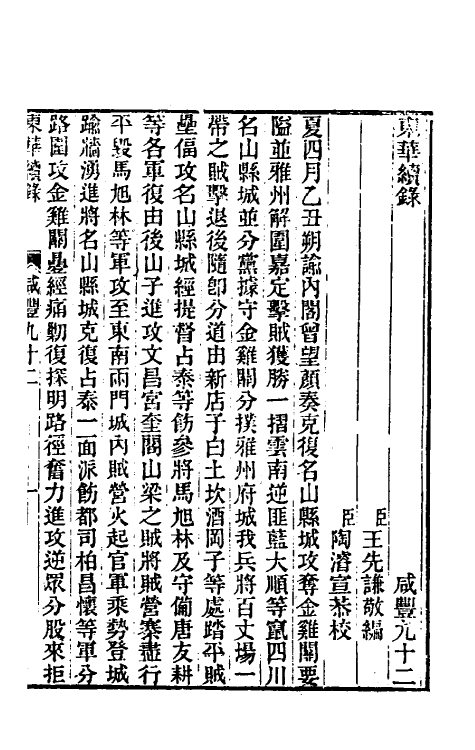 東華續錄
咸豐九十二
臣王先謙敬編
臣陶濬宣恭校
夏四月乙丑朔諭內閣曾望顏奏克復名山縣城攻奪金雞關要
隘並雅州解圍嘉定擊賊獲勝一摺雲南逆匪藍大順等竄四川
名山縣城並分黨據守金雞關分撲雅州府城我兵將百丈場一
帶之賊擊退後隨卽分道由新店子白土坎酒岡子等處踏平賊
壘偪攻名山縣城經提督占泰等飭參將馬旭林及守備唐友耕
等各軍復由後山子進攻文昌宮奎閣山梁之賊將賊營寨盡行
平毀馬旭林等軍攻至東南兩門城內賊營火起官軍乘勢登城
踰牆湧進將名山縣城克復占泰一面派飭都司柏昌懷等軍分
路圍攻金雞關疊經痛勦復探明路徑奮力進攻逆眾分股來拒
東華續錄
咸豐九十二
一